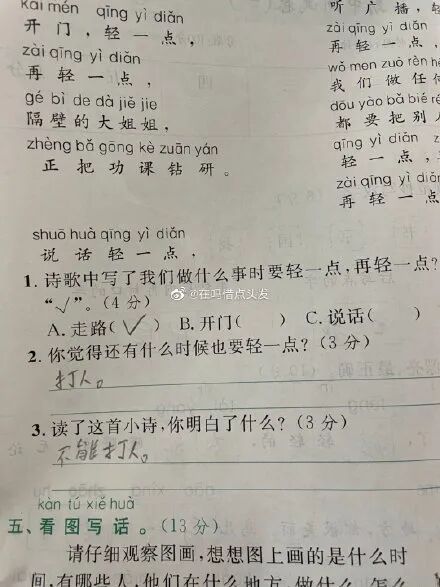 kāi mén qīng yì diǎn
开门，轻一点，
zài qīng yì diǎn
再轻一点，
gé bì de dà jiě jie
隔壁的大姐姐，
zhèng bǎ gōng kè zuān yán
正把功课钻研。
shuō huà qīng yì diǎn
说话轻一点，
听广播，轻
zài qīng yì diǎn
再轻一点，
wǒ men zuò rèn hé
我们做任
dōu yào bǎ bié
都要把别
qīng yì diǎn
轻一点，
zài qīng yì diǎn
再轻一点
1. 诗歌中写了我们做什么事时要轻一点，再轻一点？
“√”。(4分)
A. 走路(√) B. 开门( ) C. 说话( )
2. 你觉得还有什么时候也要轻一点？(3分)
打人。
3. 读了这首小诗，你明白了什么？(3分)
不能打人。
kàn tú xiě huà
五、看图写话。(13分)
请仔细观察图画，想想图上画的是什么时
间，有哪些人，他们在什么地方，做什么，怎么
@在吗借点头发